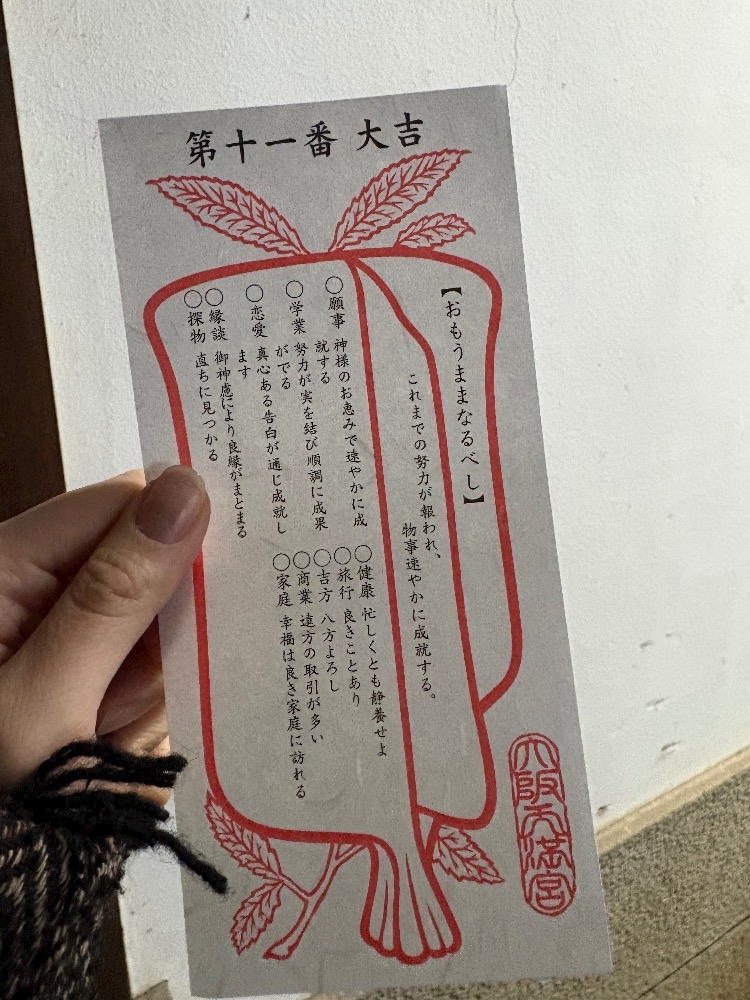 第十一番 大吉
【おもうままなるべし】
これまでの努力が報われ、
物事速やかに成就する。
○願事 神様のお恵みで速やかに成
就する
○学業 努力が実を結び順調に成果
がでる
○恋愛 真心ある告白が通じ成就し
ます
○縁談 御神慮により良縁がまとまる
○探物 直ちに見つかる
○健康 忙しくとも静養せよ
○旅行 良きことあり
○吉方 八方よろし
○商業 遠方の取引が多い
○家庭 幸福は良き家庭に訪れる
大阪天満宮